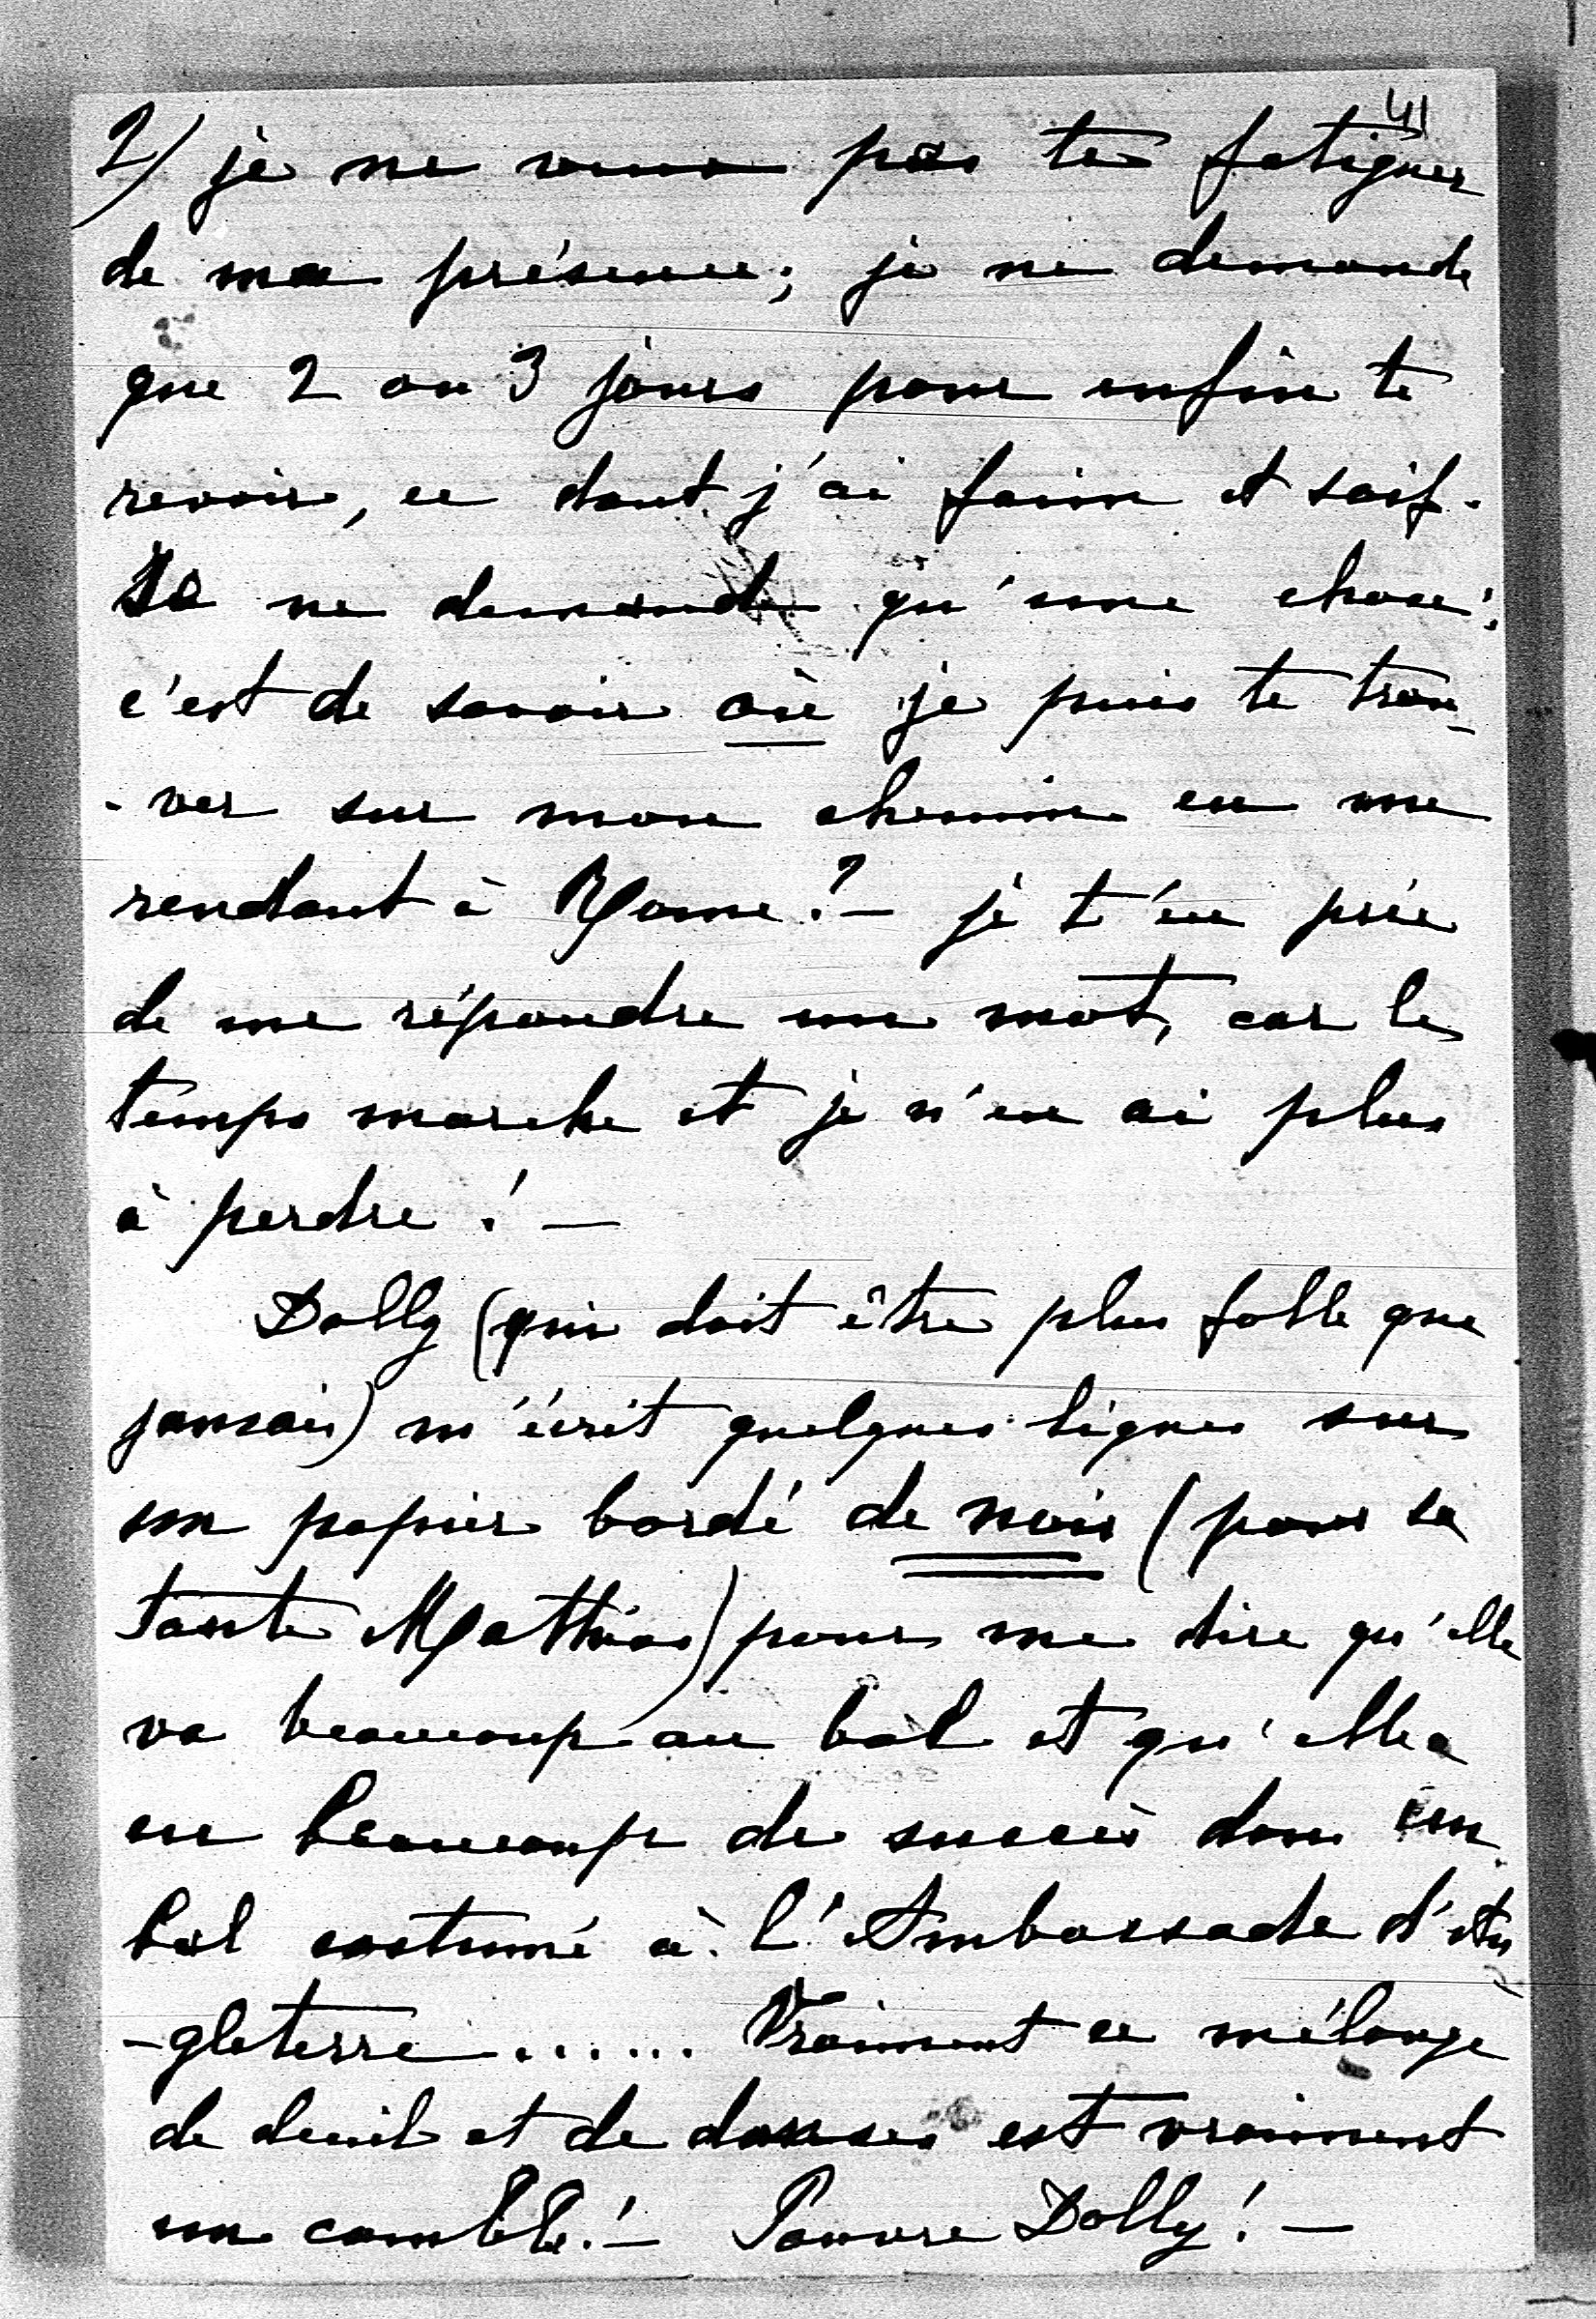 41
2/ je ne veux pas te fatiguer
de ma présence; je ne demande
que 2 ou 3 jours pour enfin te
revoir, ce dont j'ai faim et soif.
Je ne demande qu'une chose:
c'est de savoir où je puis te trou-
-ver sur mon chemin en me
rendant à Rome? — je t'en prie
de me répondre un mot, car le
temps marche et je n'en ai plus
à perdre! —
Dolly (qui doit être plus folle que
jamais) m'écrit quelques lignes sur
un papier bordé de noir (pour sa
tante Matthias) pour me dire qu'elle
va beaucoup au bal et qu'elle a
eu beaucoup de succès dans un
bal costumé à l'Ambassade d'An
-gleterre...... Vraiment ce mélange
de deuil et de danses est vraiment
un comble! — Pauvre Dolly! —